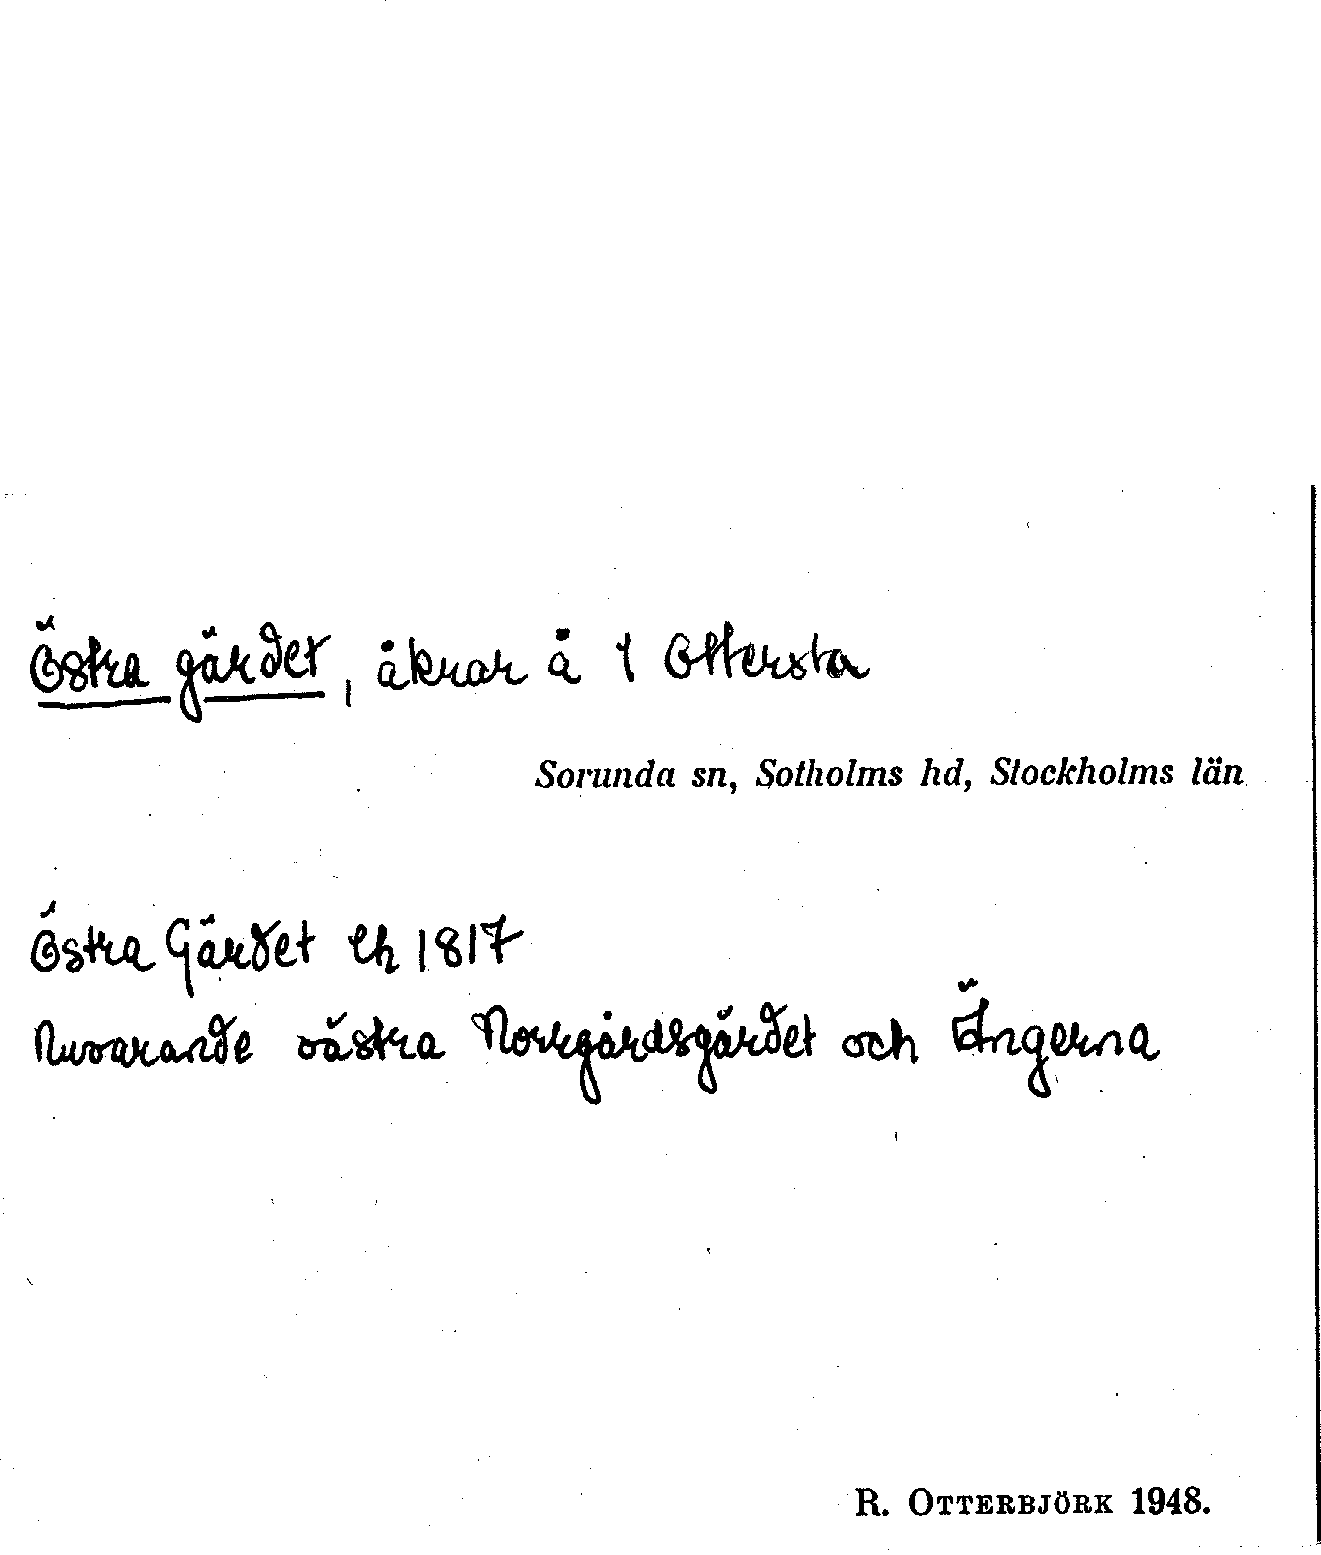 Östra gärdet, åkrar å 1 Ottersta
Sorunda sn, Sotholms hd, Stockholms län
Östra Gärdet lh 1817
Nuvarande västra Norrgårdsgärdet och Ängerna
R. OTTERBJÖRK 1948.